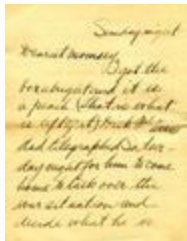 Sunday night
Dearest mommsey
I got the
box alright and it is
a peach (that is what
is left of it) Dick
dad telegraphed Satur-
day night for him to come
home to talk over the
war situation and
decide what he is